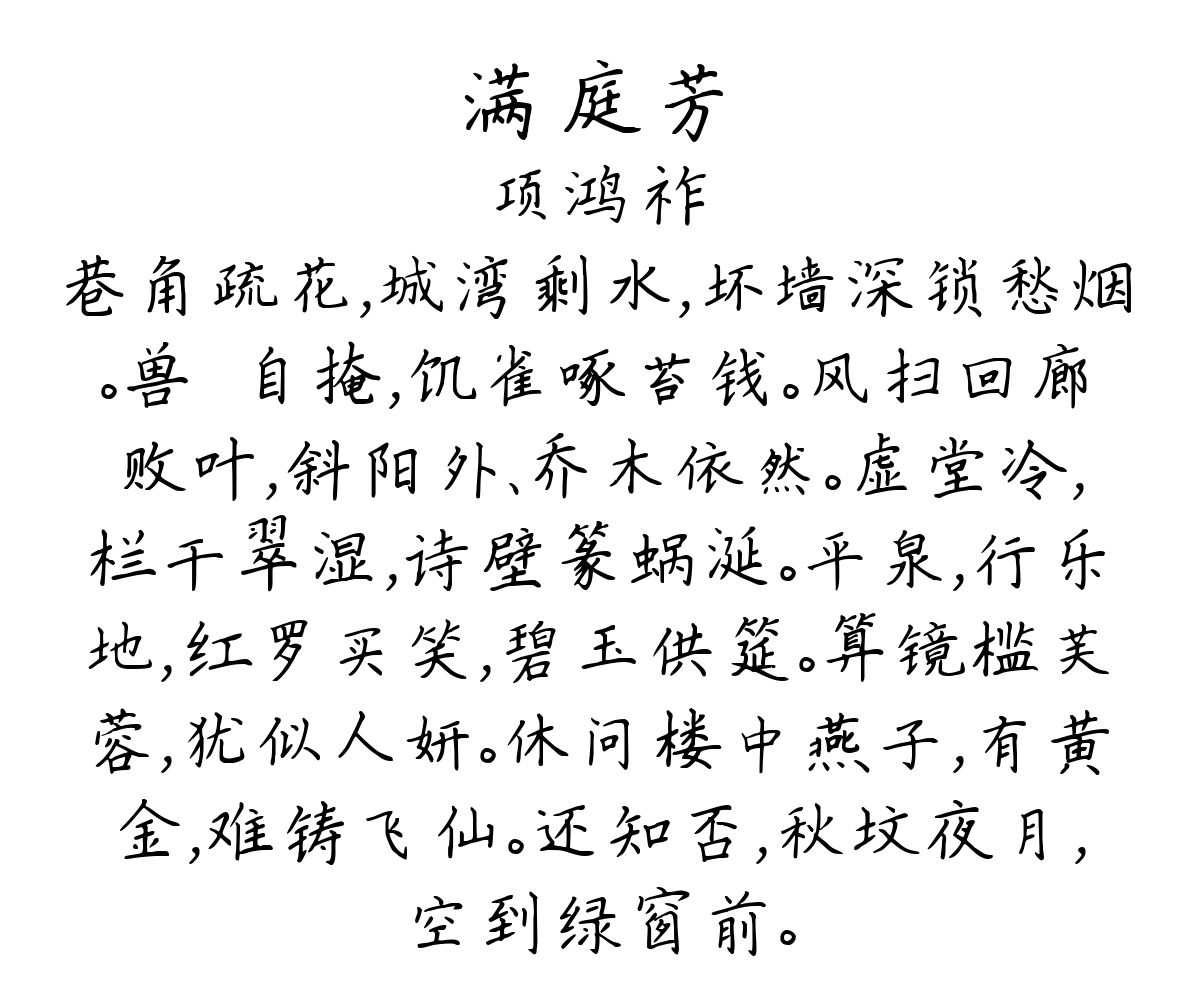 满庭芳
项鸿祚
巷角疏花,城湾剩水,坏墙深锁愁烟
。兽 自掩,饥雀啄苔钱。风扫回廊
败叶,斜阳外、乔木依然。虚堂冷,
栏干翠湿,诗壁篆蜗涎。平泉,行乐
地,红罗买笑,碧玉供筵。算镜槛芙
蓉,犹似人妍。休问楼中燕子,有黄
金,难铸飞仙。还知否,秋坟夜月,
空到绿窗前。